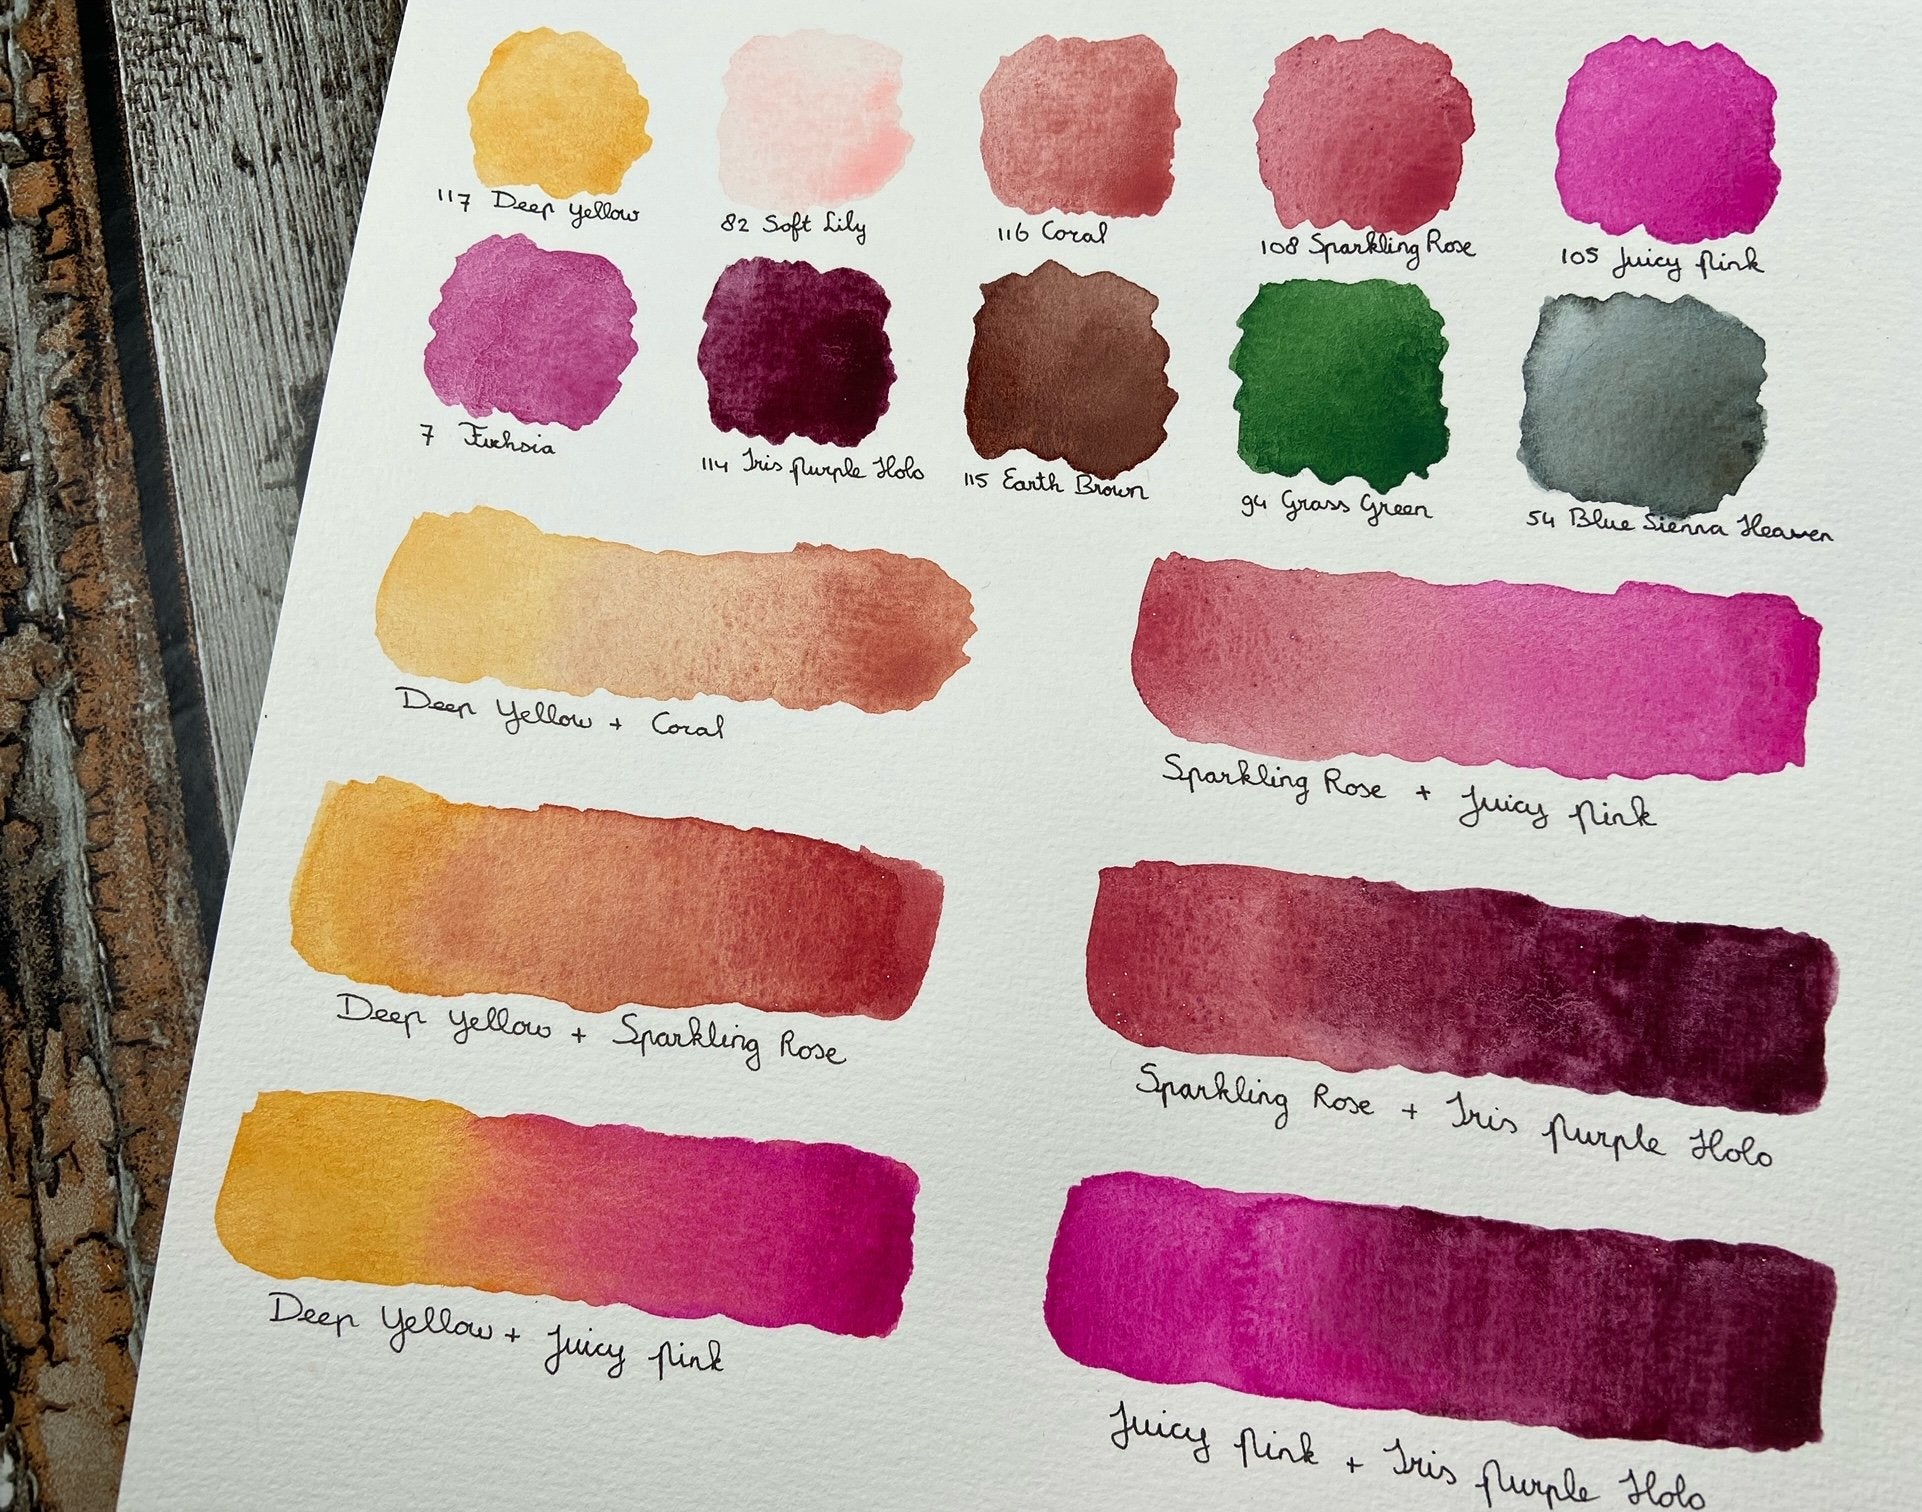 117 Deep Yellow
82 Soft Lily
116 Coral
108 Sparkling Rose
105 Juicy Pink
7 Fuchsia
114 Iris Purple Holo
115 Earth Brown
94 Grass Green
54 Blue Sienna Heaven
Deep Yellow + Coral
Sparkling Rose + Juicy Pink
Deep Yellow + Sparkling Rose
Sparkling Rose + Iris Purple Holo
Deep Yellow + Juicy Pink
Juicy Pink + Iris Purple Holo